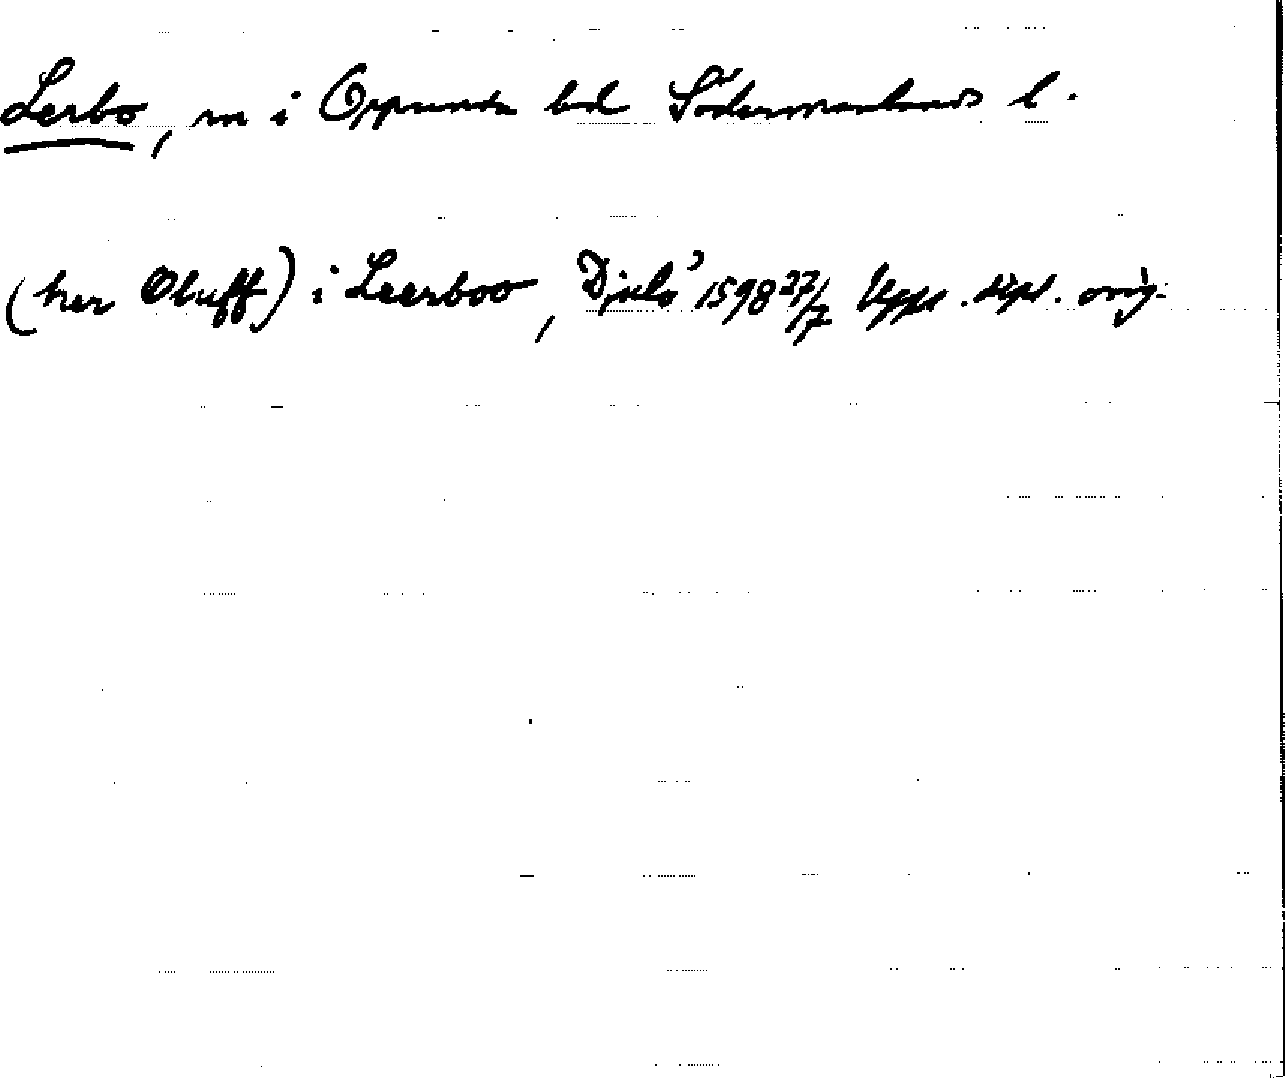 Lerbo, sn i Oppunda hd Södermanlands l.
(her Oluff) i Leerboo, Djulö 1598 27/7 Upps. dipl. orig.